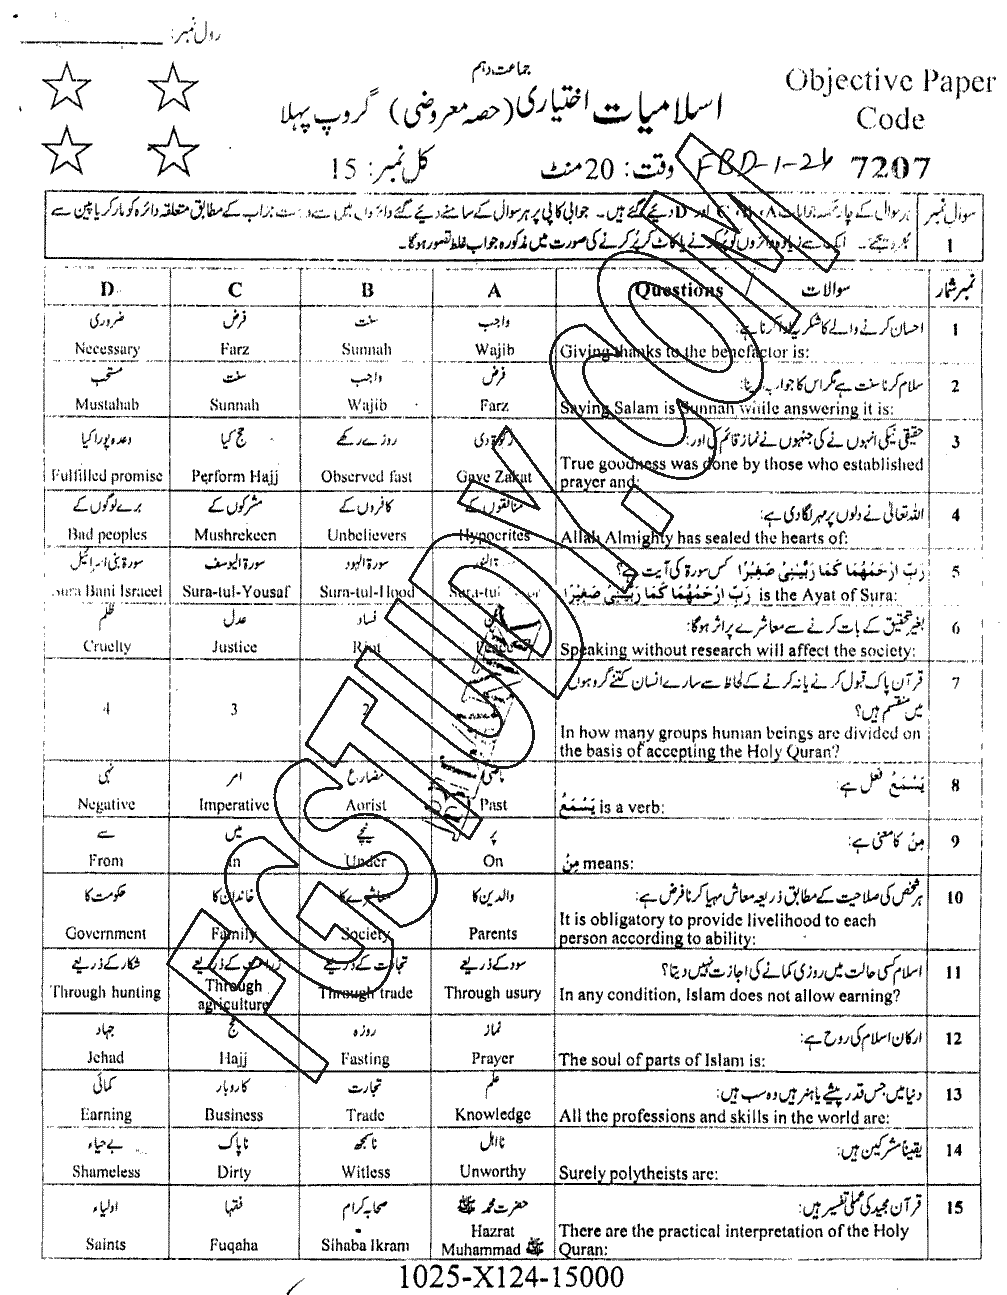 رول نمبر:
جماعت دہم
Objective Paper
Code
اسلامیات اختیاری (حصہ معروضی) گروپ پہلا
7207 FBD-1-24 وقت: 20 منٹ کل نمبر: 15
سوال نمبر 1
ہر سوال کے چار جوابات A، B، C اور D دیئے گئے ہیں۔ جوابی کاپی پر ہر سوال کے سامنے دیئے گئے دائروں میں سے درست جواب کے مطابق متعلقہ دائرہ کو مارکر یا پین سے
ایک سے زیادہ دائروں کو پُر کرنے یا کاٹ کر پُر کرنے کی صورت میں مذکورہ جواب غلط تصور ہوگا۔
نمبر شمار سوالات Questions A B C D
1 احسان کرنے والے کا شکریہ ادا کرنا ہے: واجب سنت فرض ضروری
Giving thanks to the benefactor is: Wajib Sunnah Farz Necessary
2 سلام کرنا سنت ہے مگر اس کا جواب دینا: فرض واجب سنت مستحب
Saying Salam is Sunnah while answering it is: Farz Wajib Sunnah Mustahab
3 حقیقی نیکی انہوں نے کی جنہوں نے نماز قائم کی اور: زکوٰۃ دی روزے رکھے حج کیا وعدہ پورا کیا
True goodness was done by those who established
prayer and: Gave Zakat Observed fast Perform Hajj Fulfilled promise
4 اللہ تعالیٰ نے دلوں پر مہر لگا دی ہے: منافقوں کے کافروں کے مشرکوں کے برے لوگوں کے
Allah Almighty has sealed the hearts of: Hypocrites Unbelievers Mushrekeen Bad peoples
5 رَبِّ ارْحَمْهُمَا كَمَا رَبَّيٰنِيْ صَغِيْرًا کس سورۃ کی آیت ہے؟ سورۃ الہود سورۃ الیوسف سورۃ بنی اسرائیل
رَبِّ ارْحَمْهُمَا كَمَا رَبَّيٰنِيْ صَغِيْرًا is the Ayat of Sura: Sura-tul- Sura-tul-Hood Sura-tul-Yousaf Sura Bani Israeel
6 بغیر تحقیق کے بات کرنے سے معاشرے پر اثر ہوگا: امن فساد عدل ظلم
Speaking without research will affect the society: Peace Riot Justice Cruelty
7 قرآن پاک قبول کرنے یا نہ کرنے کے لحاظ سے سارے انسان کتنے گروہوں
میں منقسم ہیں؟ 2 3 4
In how many groups human beings are divided on
the basis of accepting the Holy Quran?
8 يَسْمَعُ فعل ہے: ماضی مضارع امر نہی
يَسْمَعُ is a verb: Past Aorist Imperative Negative
9 مِنْ کا معنی ہے: پر نیچے میں سے
مِنْ means: On Under in From
10 ہر شخص کی صلاحیت کے مطابق ذریعہ معاش مہیا کرنا فرض ہے: والدین کا معاشرے کا خاندان کا حکومت کا
It is obligatory to provide livelihood to each
person according to ability: Parents Society Family Government
11 اسلام کسی حالت میں روزی کمانے کی اجازت نہیں دیتا؟ سود کے ذریعے تجارت کے ذریعے زراعت کے ذریعے شکار کے ذریعے
In any condition, Islam does not allow earning? Through usury Through trade Through agriculture Through hunting
12 ارکان اسلام کی روح ہے: نماز روزہ حج جہاد
The soul of parts of Islam is: Prayer Fasting Hajj Jehad
13 دنیا میں جس قدر پیشے یا ہنر ہیں وہ سب ہیں: علم تجارت کاروبار کمائی
All the professions and skills in the world are: Knowledge Trade Business Earning
14 یقیناً مشرکین ہیں: نااہل ناسمجھ ناپاک بے حیاء
Surely polytheists are: Unworthy Witless Dirty Shameless
15 قرآن مجید کی عملی تفسیر ہیں: حضرت محمد ﷺ صحابہ کرام فقہا اولیاء
There are the practical interpretation of the Holy
Quran: Hazrat Muhammad ﷺ Sihaba Ikram Fuqaha Saints
1025-X124-15000
FGSTUDY.COM